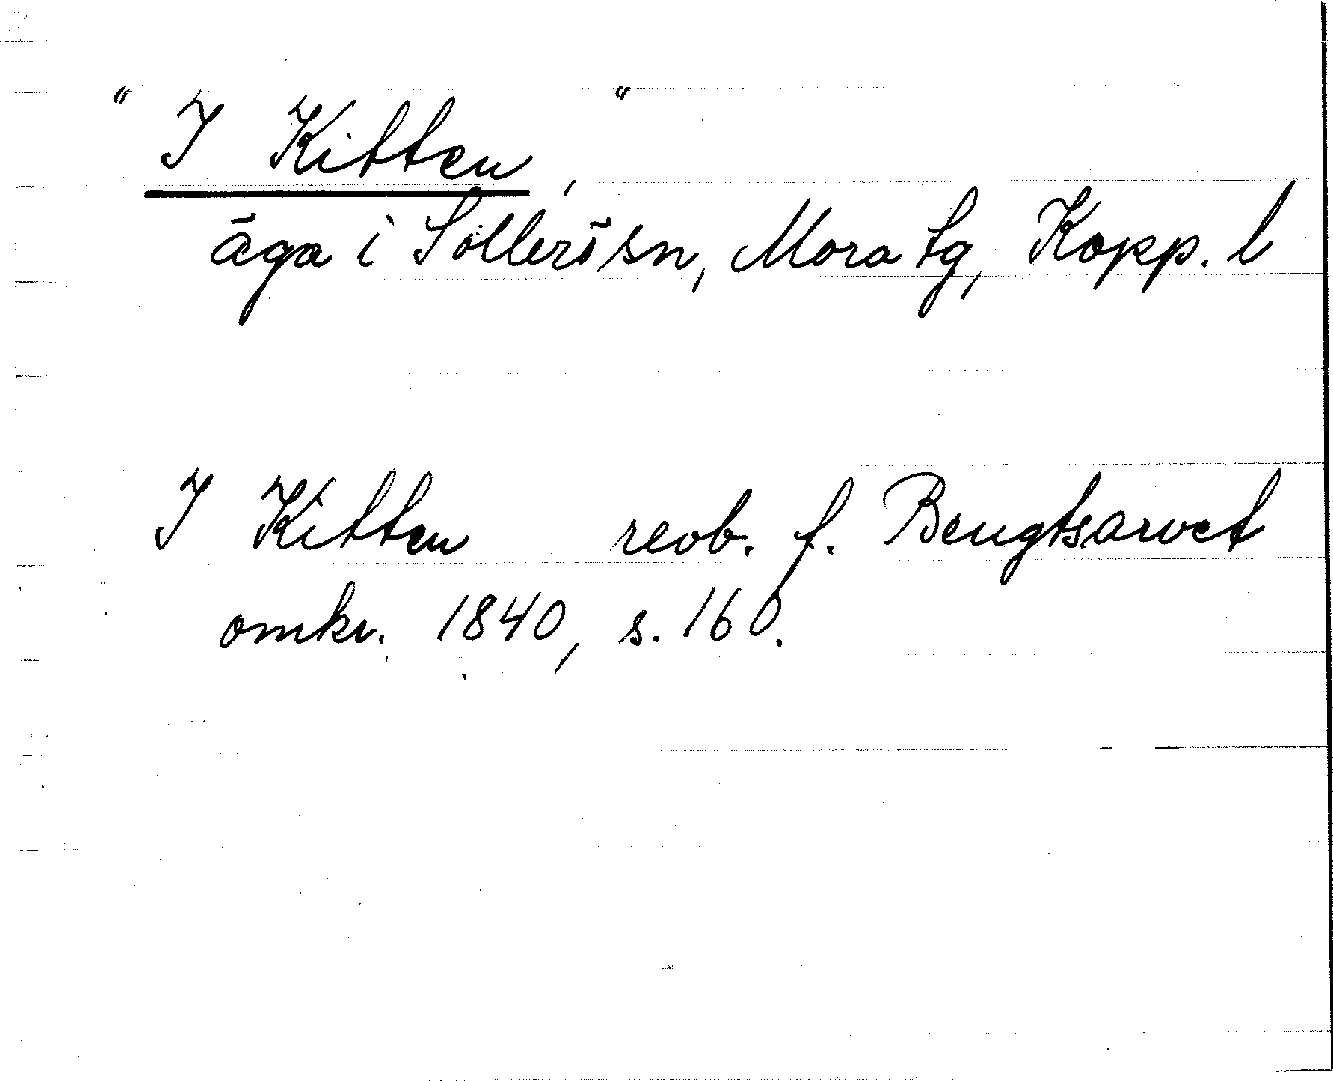 " I Kitten, "
äga i Sollerö sn, Mora tg, Kopp. l
I Kitten revb. f. Bengtsarvet
omkr. 1840, s. 160.